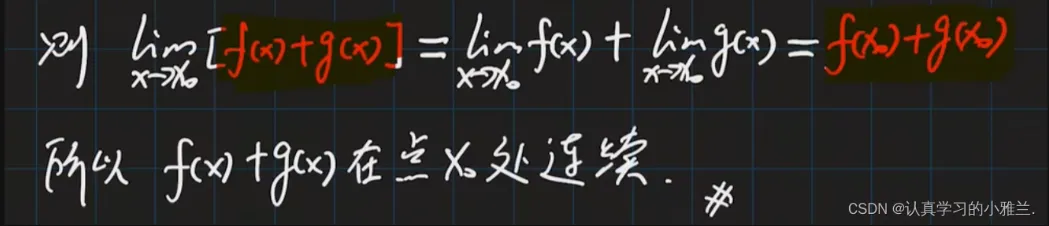 则 lim x→x₀ [f(x)+g(x)] = lim x→x₀ f(x) + lim x→x₀ g(x) = f(x₀)+g(x₀)
所以 f(x)+g(x)在点x₀处连续. #
CSDN @认真学习的小雅兰.